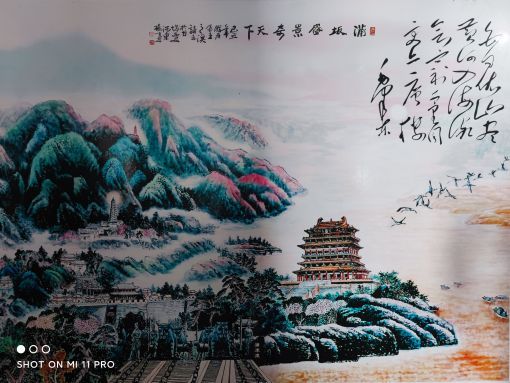 蒲坂盛景奇天下
白日依山尽
黄河入海流
欲穷千里目
更上一层楼
毛泽东
SHOT ON MI 11 PRO